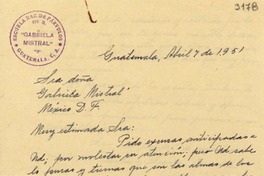 317B
ESCUELA NAC. DE PÁRVULOS
Nº 5
"GABRIELA
MISTRAL"
GUATEMALA, C. A.
Guatemala, Abril 7 de 1951
Sra doña
Gabriela Mistral
México D. F.
Muy estimada Sra:
Pido excusas anticipadas a
Ud. por molestar su atención, pero Ud sabe
lo puras y tiernas que son las almas de los